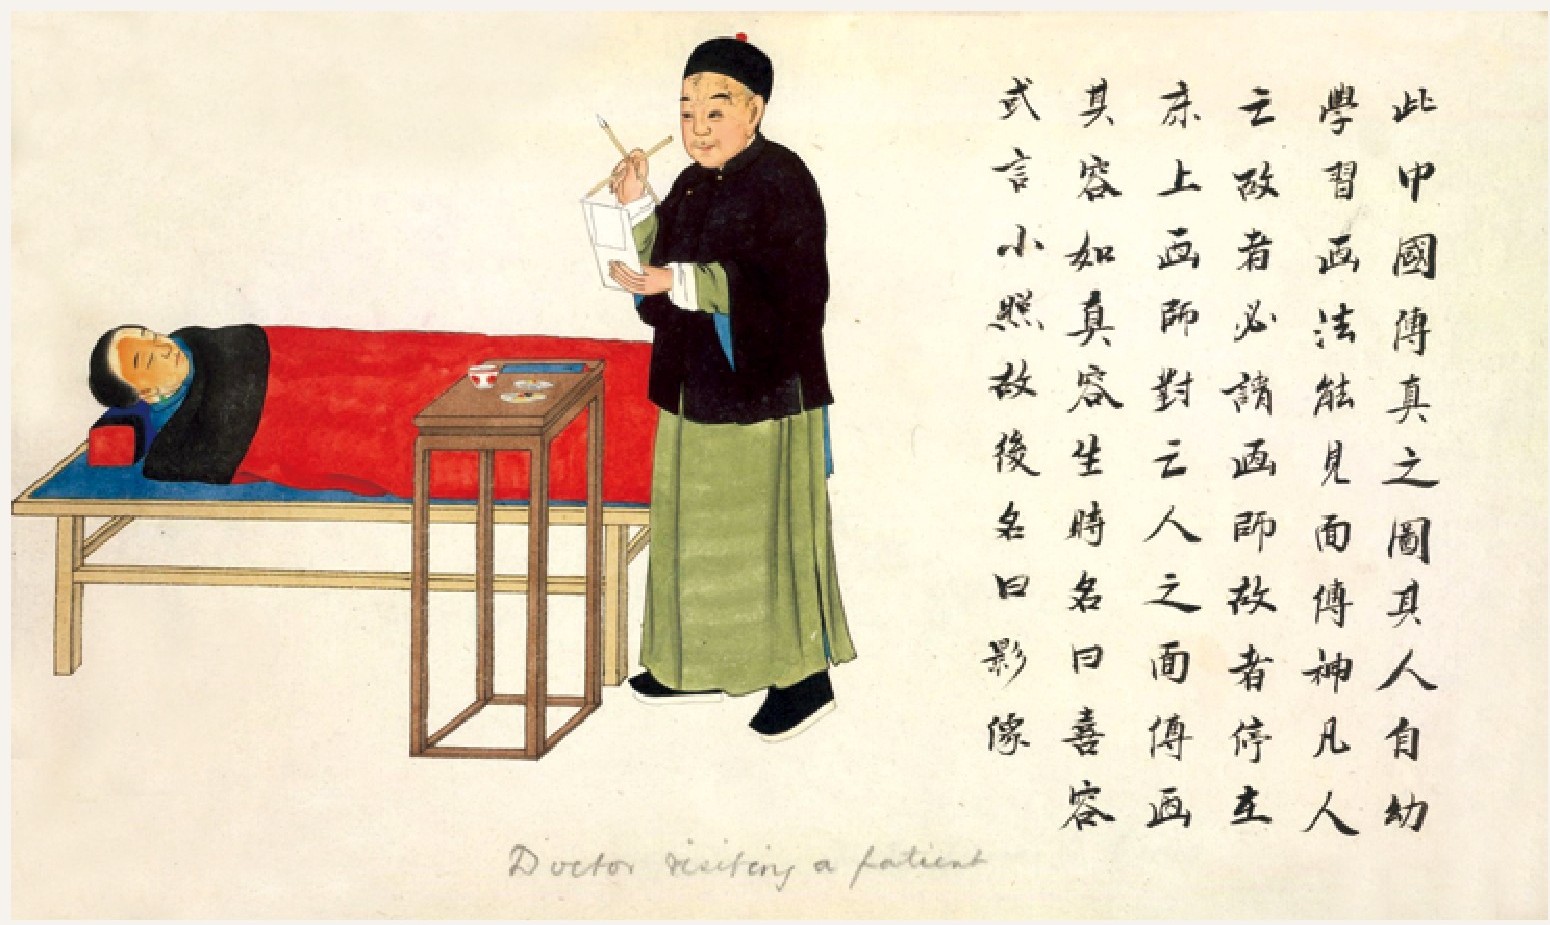 此中國傳真之圖其人自幼
學習画法能見面傳神凡人
亡故者必請画師故者停在
床上画師對亡人之面傳画
其容如真容生時名曰喜容
或言小照故後名曰影像
Doctor visiting a patient